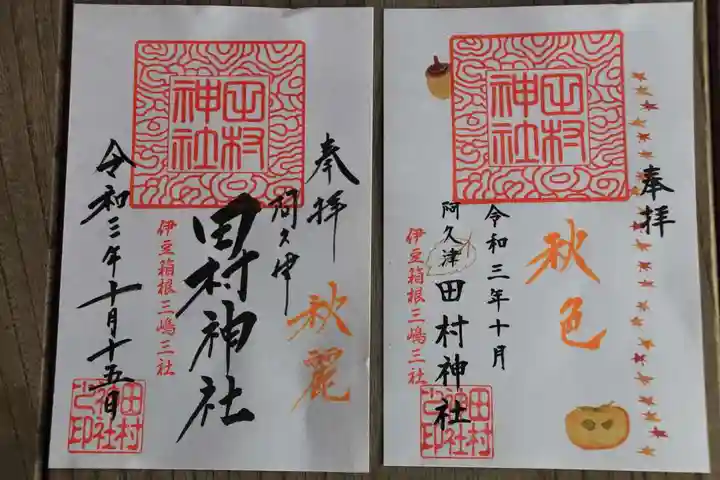 奉拝
秋麗
阿久津
田村神社
田村神社
伊豆箱根三嶋三社
令和三年十月十五日
田村神社之印
奉拝
秋色
田村神社
令和三年十月
阿久津
田村神社
伊豆箱根三嶋三社
田村神社之印